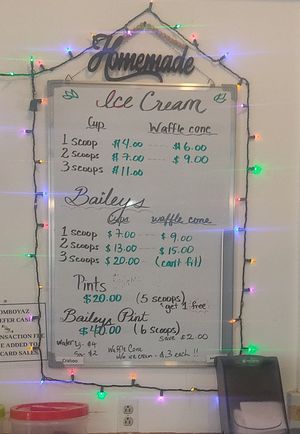 Homemade
Ice Cream
Cup Waffle cone
1 scoop $4.00 $6.00
2 scoops $7.00 $9.00
3 scoops $11.00
Baileys
Cups waffle cone
1 scoop $7.00 $9.00
2 scoops $13.00 $15.00
3 scoops $20.00 (can't fit)
Pints
$20.00 (5 scoops)
get 1 free
Baileys Pint
$40.00 (6 scoops)
save $2.00
$4 Waffle Cone
$2 $3 each !!
OMBOYAZ
EFER CASH
ANSACTION FEE
BE ADDED TO
CARD SALES